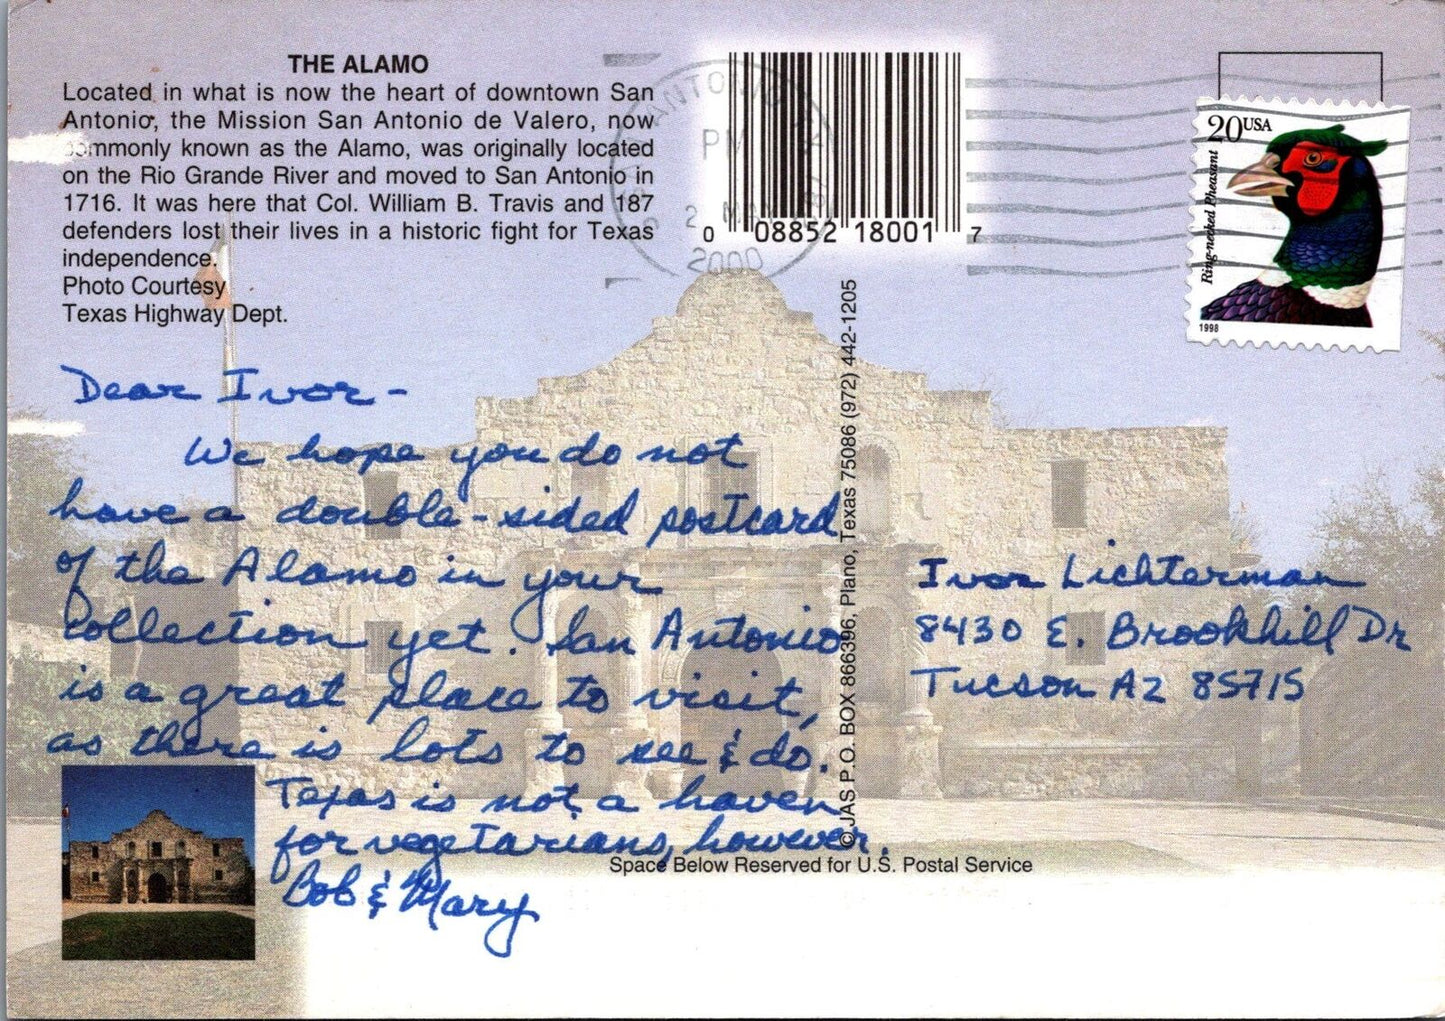 THE ALAMO
Located in what is now the heart of downtown San
Antonio, the Mission San Antonio de Valero, now
commonly known as the Alamo, was originally located
on the Rio Grande River and moved to San Antonio in
1716. It was here that Col. William B. Travis and 187
defenders lost their lives in a historic fight for Texas
independence.
Photo Courtesy
Texas Highway Dept.
PM
2000
0 08852 18001 7
20USA
Ring-necked Pheasant
1998
Dear Ivor -
We hope you do not
have a double-sided postcard
of the Alamo in your
collection yet. San Antonio
is a great place to visit,
as there is lots to see & do.
Texas is not a haven
for vegetarians, however.
Bob & Mary
© JAS P.O. BOX 866396, Plano, Texas 75086 (972) 442-1205
Ivor Lichterman
8430 E. Brookhill Dr
Tucson AZ 85715
Space Below Reserved for U.S. Postal Service